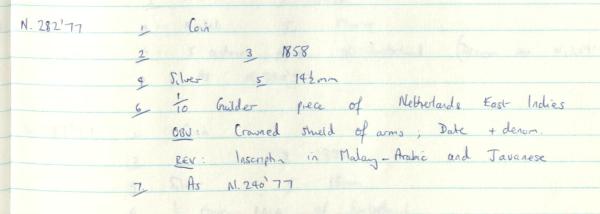 N. 282'77 1 Coin
2 3 1858
4 Silver 5 14½mm
6 1/10 Gulder piece of Netherlands East Indies
OBV: Crowned shield of arms; Date + denom.
REV: Inscriptn in Malay-Arabic and Javanese
7. As N.240'77